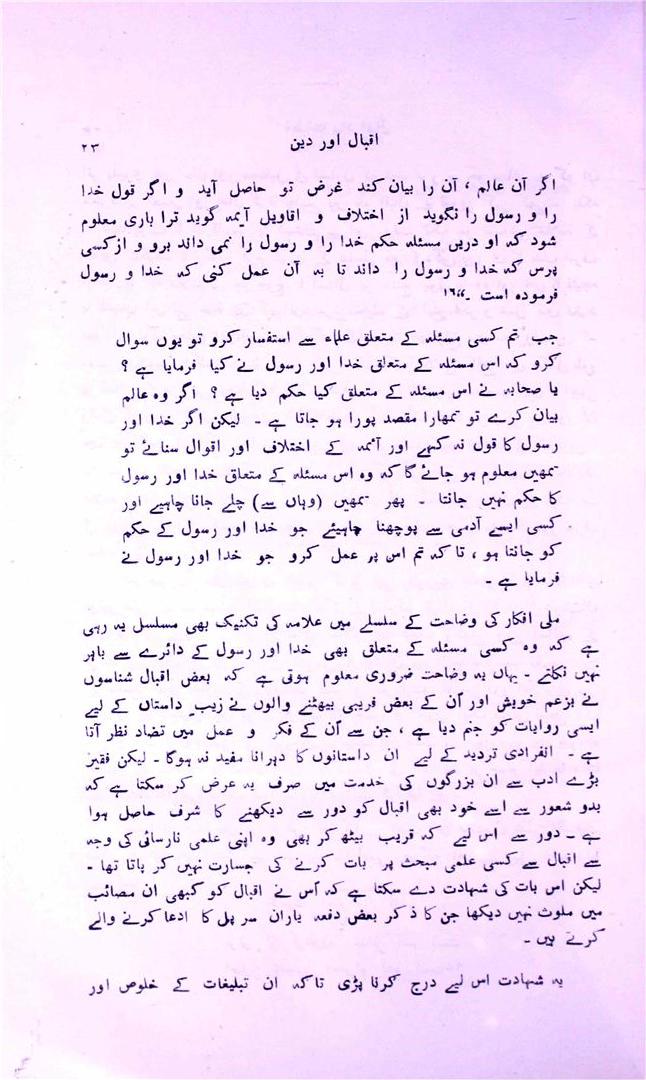 اقبال اور دین
۲۳
اگر آن عالم ، آن را بیان کند غرض تو حاصل آید و اگر قول خدا
را و رسول را نگوید از اختلاف و اقاویل آیمہ گوید ترا باری معلوم
شود کہ او دریں مسئلہ حکم خدا را و رسول را نمی داند برو و از کسی
پرس کہ خدا و رسول را داند تا بہ آن عمل کنی کہ خدا و رسول
فرمودہ است ۔“۱۶
جب تم کسی مسئلہ کے متعلق علماء سے استفسار کرو تو یوں سوال
کرو کہ اس مسئلہ کے متعلق خدا اور رسول نے کیا فرمایا ہے ؟
یا صحابہ نے اس مسئلہ کے متعلق کیا حکم دیا ہے ؟ اگر وہ عالم
بیان کرے تو تمھارا مقصد پورا ہو جاتا ہے ۔ لیکن اگر خدا اور
رسول کا قول نہ کہے اور آئمہ کے اختلاف اور اقوال سنائے تو
تمھیں معلوم ہو جائے گا کہ وہ اس مسئلہ کے متعلق خدا اور رسول
کا حکم نہیں جانتا ۔ پھر تمھیں (وہاں سے) چلے جانا چاہیے اور
کسی ایسے آدمی سے پوچھنا چاہیئے جو خدا اور رسول کے حکم
کو جانتا ہو ، تا کہ تم اس پر عمل کرو جو خدا اور رسول نے
فرمایا ہے ۔
ملی افکار کی وضاحت کے سلسلے میں علامہ کی تکنیک بھی مسلسل یہ رہی
ہے کہ وہ کسی مسئلہ کے متعلق بھی خدا اور رسول کے دائرے سے باہر
نہیں نکلتے ۔ یہاں یہ وضاحت ضروری معلوم ہوتی ہے کہ بعض اقبال شناسوں
نے بزعم خویش اور اُن کے بعض قریبی بیٹھنے والوں نے زیبِ داستاں کے لیے
ایسی روایات کو جنم دیا ہے ، جن سے اُن کے فکر و عمل میں تضاد نظر آتا
ہے ۔ انفرادی تردید کے لیے ان داستانوں کا دہرانا مفید نہ ہوگا ۔ لیکن فقیر
بڑے ادب سے ان بزرگوں کی خدمت میں صرف یہ عرض کر سکتا ہے کہ
بدو شعور سے اسے خود بھی اقبال کو دور سے دیکھنے کا شرف حاصل ہوا
ہے ۔ دور سے اس لیے کہ قریب بیٹھ کر بھی وہ اپنی علمی نارسائی کی وجہ
سے اقبال سے کسی علمی مبحث پر بات کرنے کی جسارت نہیں کر پاتا تھا ۔
لیکن اس بات کی شہادت دے سکتا ہے کہ اُس نے اقبال کو کبھی ان مصائب
میں ملوث نہیں دیکھا جن کا ذکر بعض دفعہ یاران سرِ پل کا ادعا کرنے والے
کرتے ہیں ۔
یہ شہادت اس لیے درج کرنا پڑی تاکہ ان تبلیغات کے خلوص اور